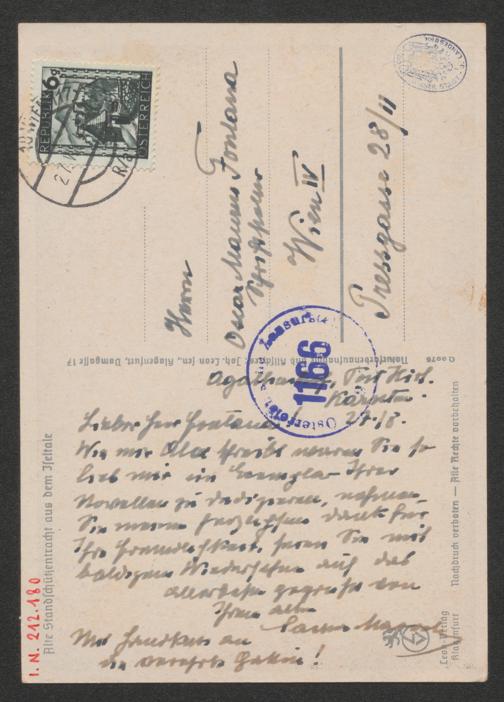 REPUBLIK
6g
ÖSTERREICH
Herrn
Oscar Maurus Fontana
Schriftsteller
Wien IV
Pressgasse 28/11
Naturfarbenaufnahme und Bildkarte Joh. Leon sen., Klagenfurt, Domgasse 17
Zensurstelle
1166
Österreich
Kärnten
27/8.
Lieber Herr Fontana!
Wie mir Alex schreibt waren Sie so
lieb mir ein Exemplar Ihrer
Novellen zu dedizieren, nehmen
Sie meinen herzlichsten Dank für
Ihre Freundlichkeit, seien Sie mit
baldigem Wiedersehen auf das
allerbeste gegrüsst von
Ihrem alten
Mit Handkuss an
die verehrte Gattin!
Alte Standschützentracht aus dem Iseltale
I. N. 212.180
Nachdruck verboten — Alle Rechte vorbehalten
Leon-Verlag
Klagenfurt